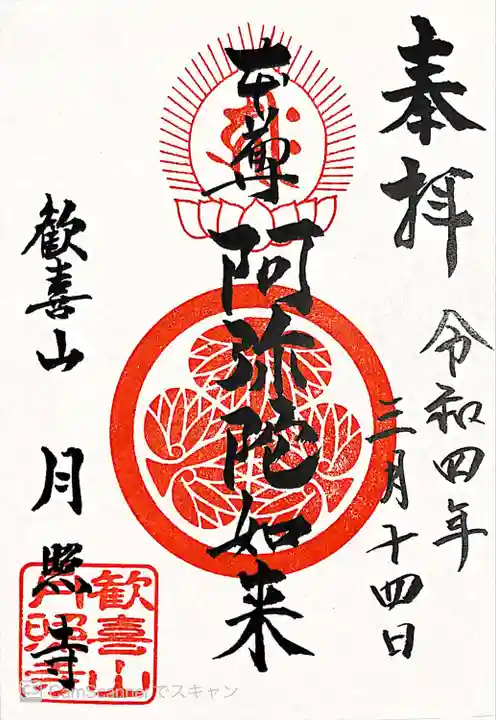 奉拝
令和四年
三月十四日
本尊
阿弥陀如来
歓喜山
月照寺
歓喜山
月照寺
CamScannerでスキャン